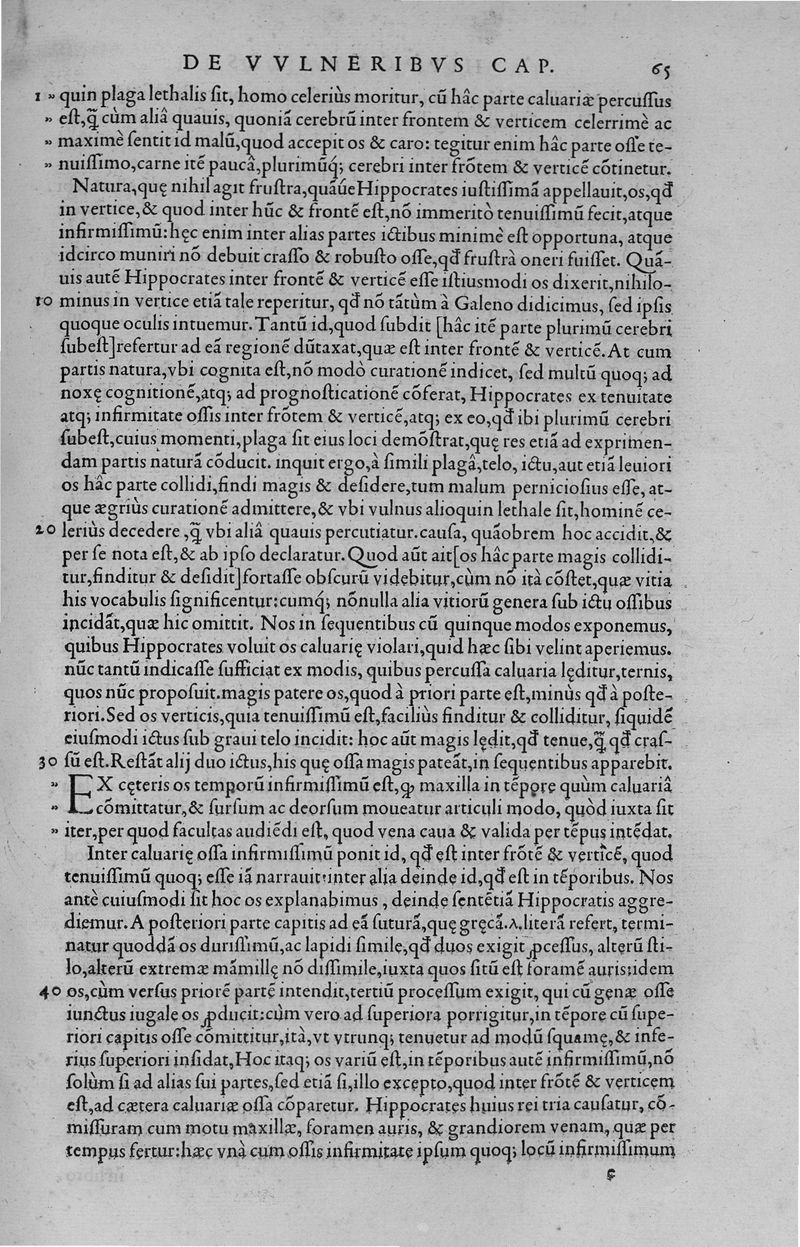 DE VVLNERIBVS CAP. 65
1 » quin plaga lethalis ſit, homo celeriùs moritur, cū hâc parte caluariæ percuſſus
» eſt, q̃ cùm aliâ quauis, quoniā cerebrū inter frontem & verticem celerrimè ac
» maximè ſentit id malū, quod accepit os & caro: tegitur enim hâc parte oſſe te-
» nuiſſimo, carne itē paucâ, plurimūq́; cerebri inter frōtem & verticē cōtinetur.
Natura, quę nihil agit fruſtra, quāúe Hippocrates iuſtiſſimā appellauit, os, qđ
in vertice, & quod inter hūc & frontē eſt, nō immeritò tenuiſſimū fecit, atque
infirmiſſimū: hęc enim inter alias partes ictibus minimè eſt opportuna, atque
idcirco muniri nō debuit craſſo & robuſto oſſe, qđ fruſtrà oneri fuiſſet. Quā-
uis autē Hippocrates inter frontē & verticē eſſe iſtiusmodi os dixerit, nihilo-
10 minus in vertice etiā tale reperitur, qđ nō tātùm à Galeno didicimus, ſed ipſis
quoque oculis intuemur. Tantū id, quod ſubdit [hâc itē parte plurimū cerebri
ſubeſt] refertur ad eā regionē dūtaxat, quæ eſt inter frontē & verticē. At cum
partis natura, vbi cognita eſt, nō modò curationē indicet, ſed multū quoq; ad
noxę cognitionē, atq; ad prognoſticationē cōferat, Hippocrates ex tenuitate
atq; infirmitate oſſis inter frōtem & verticē, atq; ex eo, qđ ibi plurimū cerebri
ſubeſt, cuius momenti, plaga ſit eius loci demōſtrat, quę res etiā ad exprimen-
dam partis naturā cōducit. inquit ergo, à ſimili plagâ, telo, ictu, aut etiā leuiori
os hâc parte collidi, findi magis & deſidere, tum malum pernicioſius eſſe, at-
que ægriùs curationē admittere, & vbi vulnus alioquin lethale ſit, hominē ce-
20 leriùs decedere, q̃ vbi aliâ quauis percutiatur. cauſa, quāobrem hoc accidit, &
per ſe nota eſt, & ab ipſo declaratur. Quod aūt ait [os hâc parte magis collidi-
tur, finditur & deſidit] fortaſſe obſcurū videbitur, cùm nō ità cōſtet, quæ vitia
his vocabulis ſignificentur: cumq́; nōnulla alia vitiorū genera ſub ictu oſſibus
incidāt, quæ hic omittit. Nos in ſequentibus cū quinque modos exponemus,
quibus Hippocrates voluit os caluarię violari, quid hæc ſibi velint aperiemus.
nūc tantū indicaſſe ſufficiat ex modis, quibus percuſſa caluaria lęditur, ternis,
quos nūc propoſuit. magis patere os, quod à priori parte eſt, minùs qđ à poſte-
riori. Sed os verticis, quia tenuiſſimū eſt, faciliùs finditur & colliditur, ſiquidē
eiuſmodi ictus ſub graui telo incidit: hoc aūt magis lędit, qđ tenue, q̃ qđ craſ-
30 ſū eſt. Reſtāt alij duo ictus, his quę oſſa magis pateāt, in ſequentibus apparebit.
» EX cęteris os temporū infirmiſſimū eſt, ꝙ maxilla in tēpore quùm caluariâ
» cōmittatur, & ſurſum ac deorſum moueatur articuli modo, quòd iuxta ſit
» iter, per quod facultas audiēdi eſt, quod vena caua & valida per tēpus intēdat.
Inter caluarię oſſa infirmiſſimū ponit id, qđ eſt inter frōtē & verticē, quod
tenuiſſimū quoq; eſſe iā narrauit: inter alia deinde id, qđ eſt in tēporibus. Nos
antè cuiuſmodi ſit hoc os explanabimus, deinde ſentētiā Hippocratis aggre-
diemur. A poſteriori parte capitis ad eā ſuturā, quę gręcā .λ. literā refert, termi-
natur quoddā os duriſſimū, ac lapidi ſimile, qđ duos exigit ꝓceſſus, alterū ſti-
lo, alterū extremæ māmillę nō diſſimile, iuxta quos ſitū eſt foramē auris: idem
40 os, cùm verſus priorē partē intendit, tertiū proceſſum exigit, qui cū genæ oſſe
iunctus iugale os ꝓducit: cùm vero ad ſuperiora porrigitur, in tēpore cū ſupe-
riori capitis oſſe cōmittitur, ità, vt vtrunq; tenuetur ad modū ſquamę, & infe-
rius ſuperiori inſidat, Hoc itaq; os variū eſt, in tēporibus autē infirmiſſimū, nō
ſolùm ſi ad alias ſui partes, ſed etiā ſi, illo excepto, quod inter frōtē & verticem
eſt, ad cætera caluariæ oſſa cōparetur. Hippocrates huius rei tria cauſatur, cō-
miſſuram cum motu maxillæ, foramen auris, & grandiorem venam, quæ per
tempus fertur: hæc vnà cum oſſis infirmitate ipſum quoq; locū infirmiſſimum